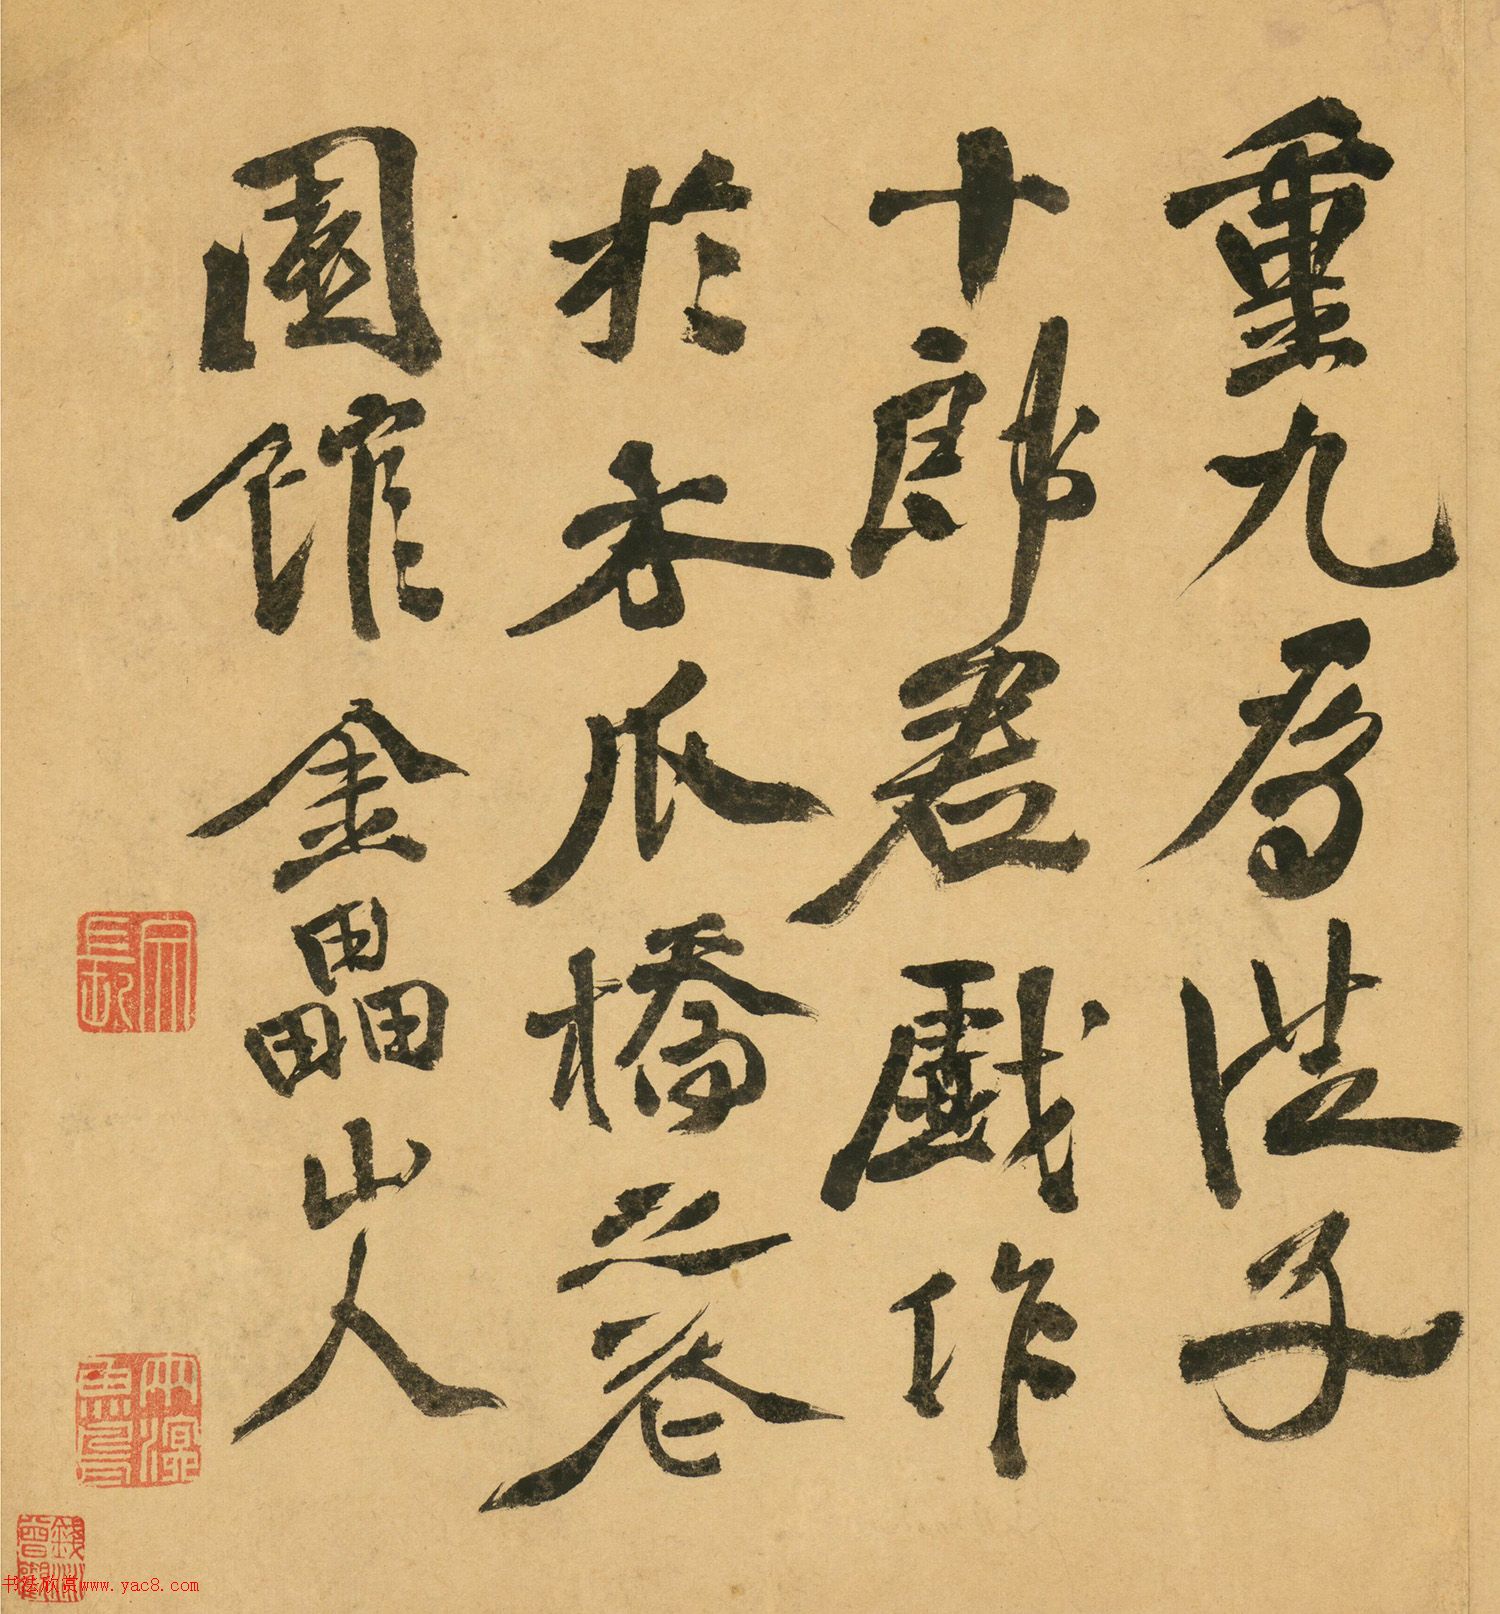 重九為子
十郎君戲作
於木瓜橋之巷
園館金畾山人
书法欣赏www.yac8.com